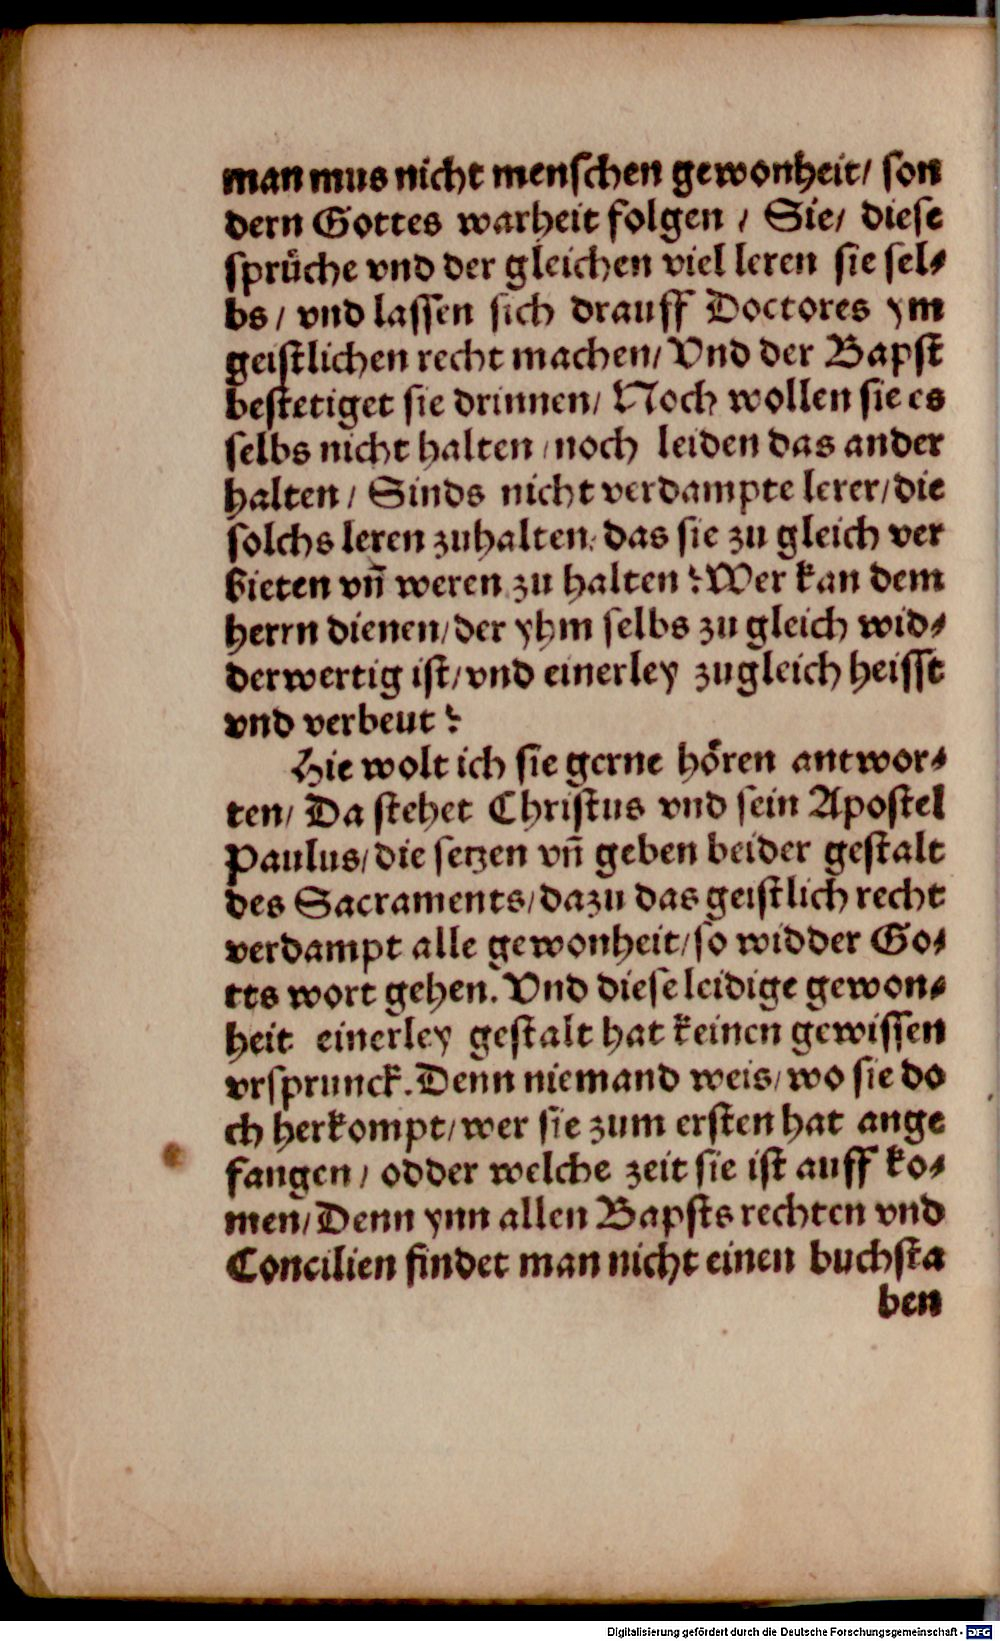 man mus nicht menschen gewonheit/ son
dern Gottes warheit folgen / Sie/ diese
sprůche vnd der gleichen viel leren sie sel⸗
bs / vnd lassen sich drauff Doctores ym
geistlichen recht machen/ Vnd der Bapst
bestetiget sie drinnen/ Noch wollen sie es
selbs nicht halten / noch leiden das ander
halten / Sinds nicht verdampte lerer/ die
solchs leren zuhalten. das sie zu gleich ver
bieten vñ weren zu halten ? Wer kan dem
herrn dienen/ der yhm selbs zu gleich wid⸗
derwertig ist/ vnd einerley zugleich heisst
vnd verbeut ?
Hie wolt ich sie gerne hôren antwor⸗
ten/ Da stehet Christus vnd sein Apostel
Paulus/ die setzen vñ geben beider gestalt
des Sacraments/ dazu das geistlich recht
verdampt alle gewonheit/ so widder Go⸗
tts wort gehen. Vnd diese leidige gewon⸗
heit einerley gestalt hat keinen gewissen
vrsprunck. Denn niemand weis/ wo sie do
ch herkompt/ wer sie zum ersten hat ange
fangen / odder welche zeit sie ist auff ko⸗
men/ Denn ynn allen Bapsts rechten vnd
Concilien findet man nicht einen buchsta
ben
Digitalisierung gefördert durch die Deutsche Forschungsgemeinschaft - DFG